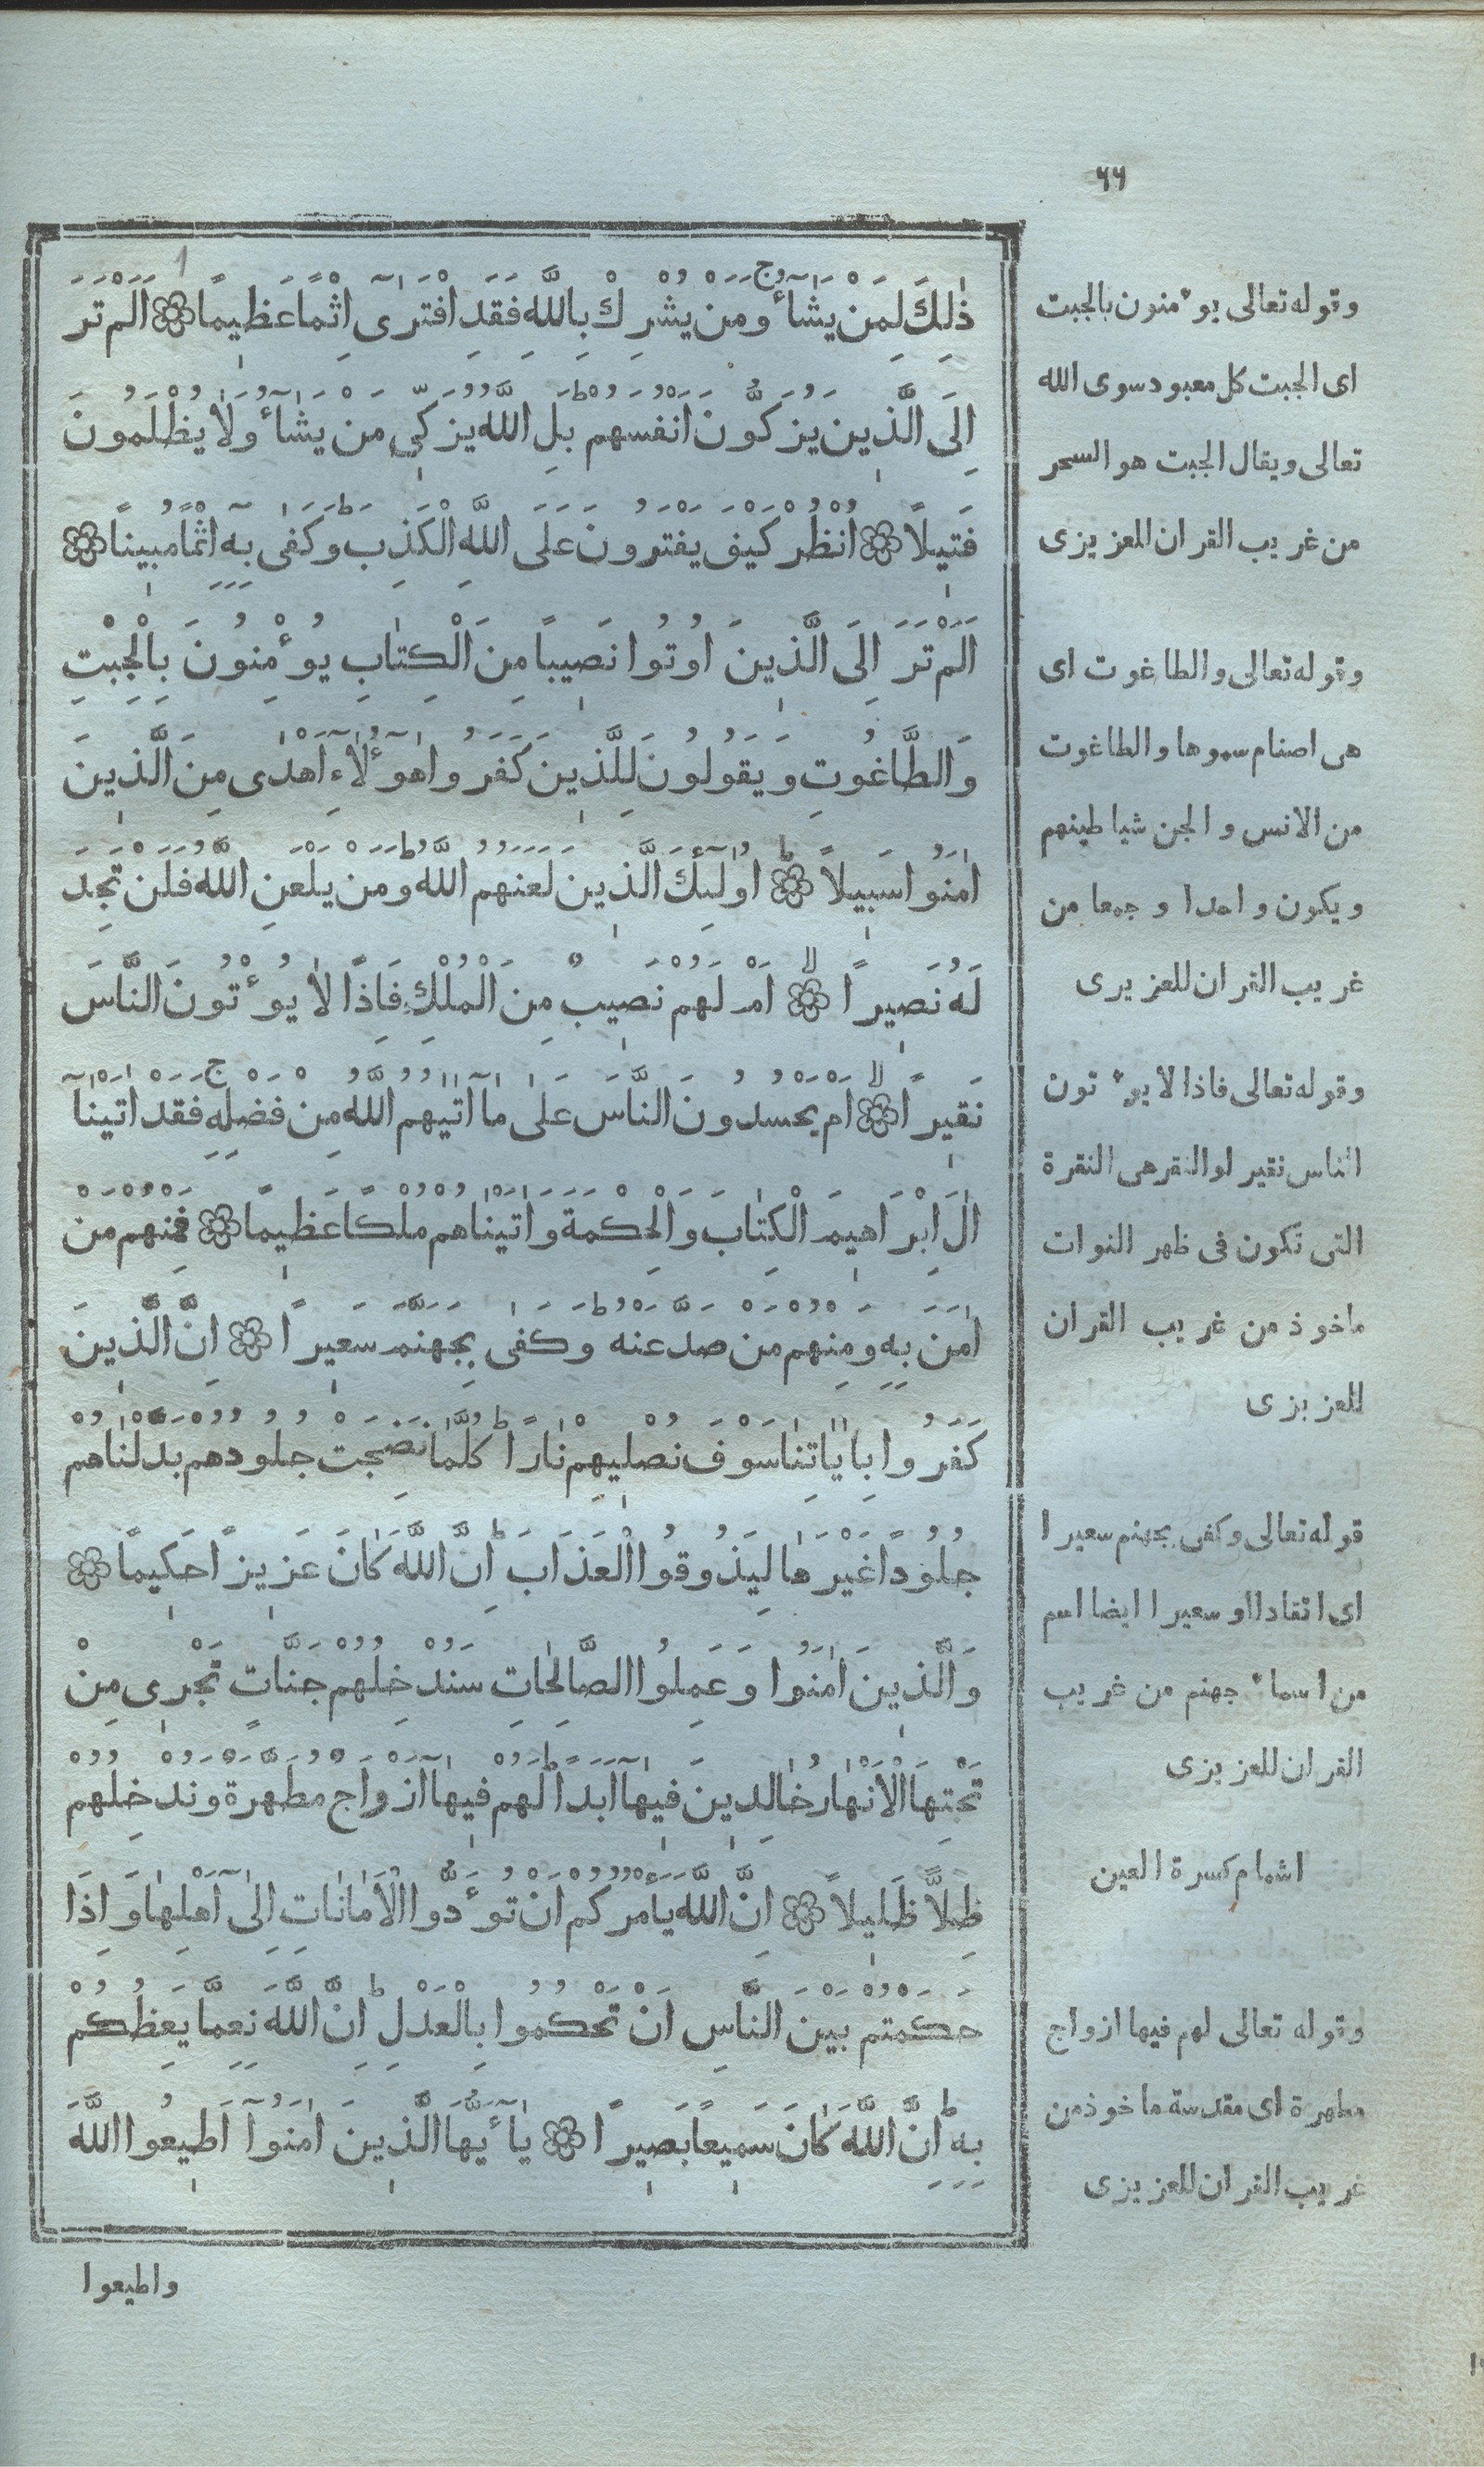 ٦٦
ذٰلِكَ لِمَنْ يَشَآءُ ج وَمَنْ يُشْرِكْ بِاللَّهِ فَقَدِ افْتَرٰٓى اِثْمًا عَظِيمًا ۞ اَلَمْ تَرَ
اِلَى الَّذِينَ يُزَكُّونَ اَنْفُسَهُمْ ط بَلِ اللَّهُ يُزَكِّى مَنْ يَشَآءُ وَلَا يُظْلَمُونَ
فَتِيلًا ۞ اُنْظُرْ كَيْفَ يَفْتَرُونَ عَلَى اللَّهِ الْكَذِبَ ط وَكَفٰى بِهِٓ اِثْمًا مُبِينًا ۞
اَلَمْ تَرَ اِلَى الَّذِينَ اُوتُوا نَصِيبًا مِنَ الْكِتَابِ يُؤْمِنُونَ بِالْجِبْتِ
وَالطَّاغُوتِ وَيَقُولُونَ لِلَّذِينَ كَفَرُوا هٰٓؤُلَآءِ اَهْدٰى مِنَ الَّذِينَ
اٰمَنُوا سَبِيلًا ۞ ط اُولٰٓئِكَ الَّذِينَ لَعَنَهُمُ اللَّهُ ط وَمَنْ يَلْعَنِ اللَّهُ فَلَنْ تَجِدَ
لَهُ نَصِيرًا ۞ لا اَمْ لَهُمْ نَصِيبٌ مِنَ الْمُلْكِ فَاِذًا لَا يُؤْتُونَ النَّاسَ
نَقِيرًا ۞ لا اَمْ يَحْسُدُونَ النَّاسَ عَلٰى مَآ اٰتٰيهُمُ اللَّهُ مِنْ فَضْلِهِ ج فَقَدْ اٰتَيْنَآ
اٰلَ اِبْرَاهِيمَ الْكِتَابَ وَالْحِكْمَةَ وَاٰتَيْنَاهُمْ مُلْكًا عَظِيمًا ۞ فَمِنْهُمْ مَنْ
اٰمَنَ بِهِ وَمِنْهُمْ مَنْ صَدَّ عَنْهُ ط وَكَفٰى بِجَهَنَّمَ سَعِيرًا ۞ اِنَّ الَّذِينَ
كَفَرُوا بِاٰيَاتِنَا سَوْفَ نُصْلِيهِمْ نَارًا ط كُلَّمَا نَضِجَتْ جُلُودُهُمْ بَدَّلْنَاهُمْ
جُلُودًا غَيْرَهَا لِيَذُوقُوا الْعَذَابَ ط اِنَّ اللَّهَ كَانَ عَزِيزًا حَكِيمًا ۞
وَالَّذِينَ اٰمَنُوا وَعَمِلُوا الصَّالِحَاتِ سَنُدْخِلُهُمْ جَنَّاتٍ تَجْرِى مِنْ
تَحْتِهَا الْاَنْهَارُ خَالِدِينَ فِيهَآ اَبَدًا ط لَهُمْ فِيهَآ اَزْوَاجٌ مُطَهَّرَةٌ وَنُدْخِلُهُمْ
ظِلًّا ظَلِيلًا ۞ اِنَّ اللَّهَ يَاْمُرُكُمْ اَنْ تُؤَدُّوا الْاَمَانَاتِ اِلٰٓى اَهْلِهَا وَاِذَا
حَكَمْتُمْ بَيْنَ النَّاسِ اَنْ تَحْكُمُوا بِالْعَدْلِ ط اِنَّ اللَّهَ نِعِمَّا يَعِظُكُمْ
بِهِ ط اِنَّ اللَّهَ كَانَ سَمِيعًا بَصِيرًا ۞ يَآ اَيُّهَا الَّذِينَ اٰمَنُوٓا اَطِيعُوا اللَّهَ
واطيعوا
وقوله تعالى يوٴمنون بالجبت
اى الجبت كل معبود سوى الله
تعالى ويقال الجبت هو السحر
من غريب القران للعزيزى
وقوله تعالى والطاغوت اى
هى اصنام سموها والطاغوت
من الانس والجن شياطينهم
ويكون واحدا وجمعا من
غريب القران للعزيرى
وقوله تعالى فاذا لا يوٴتون
الناس نقيرا والنقر هى النقرة
التى تكون فى ظهر النوات
ماخوذ من غريب القران
للعزيزى
قوله تعالى وكفى بجهنم سعيرا
اى اتقادا او سعيرا ايضا اسم
من اسماء جهنم من غريب
القران للعزيزى
اشمام كسرة العين
وقوله تعالى لهم فيها ازواج
مطهرة اى مقدسة ماخوذ من
غريب القران للعزيزى